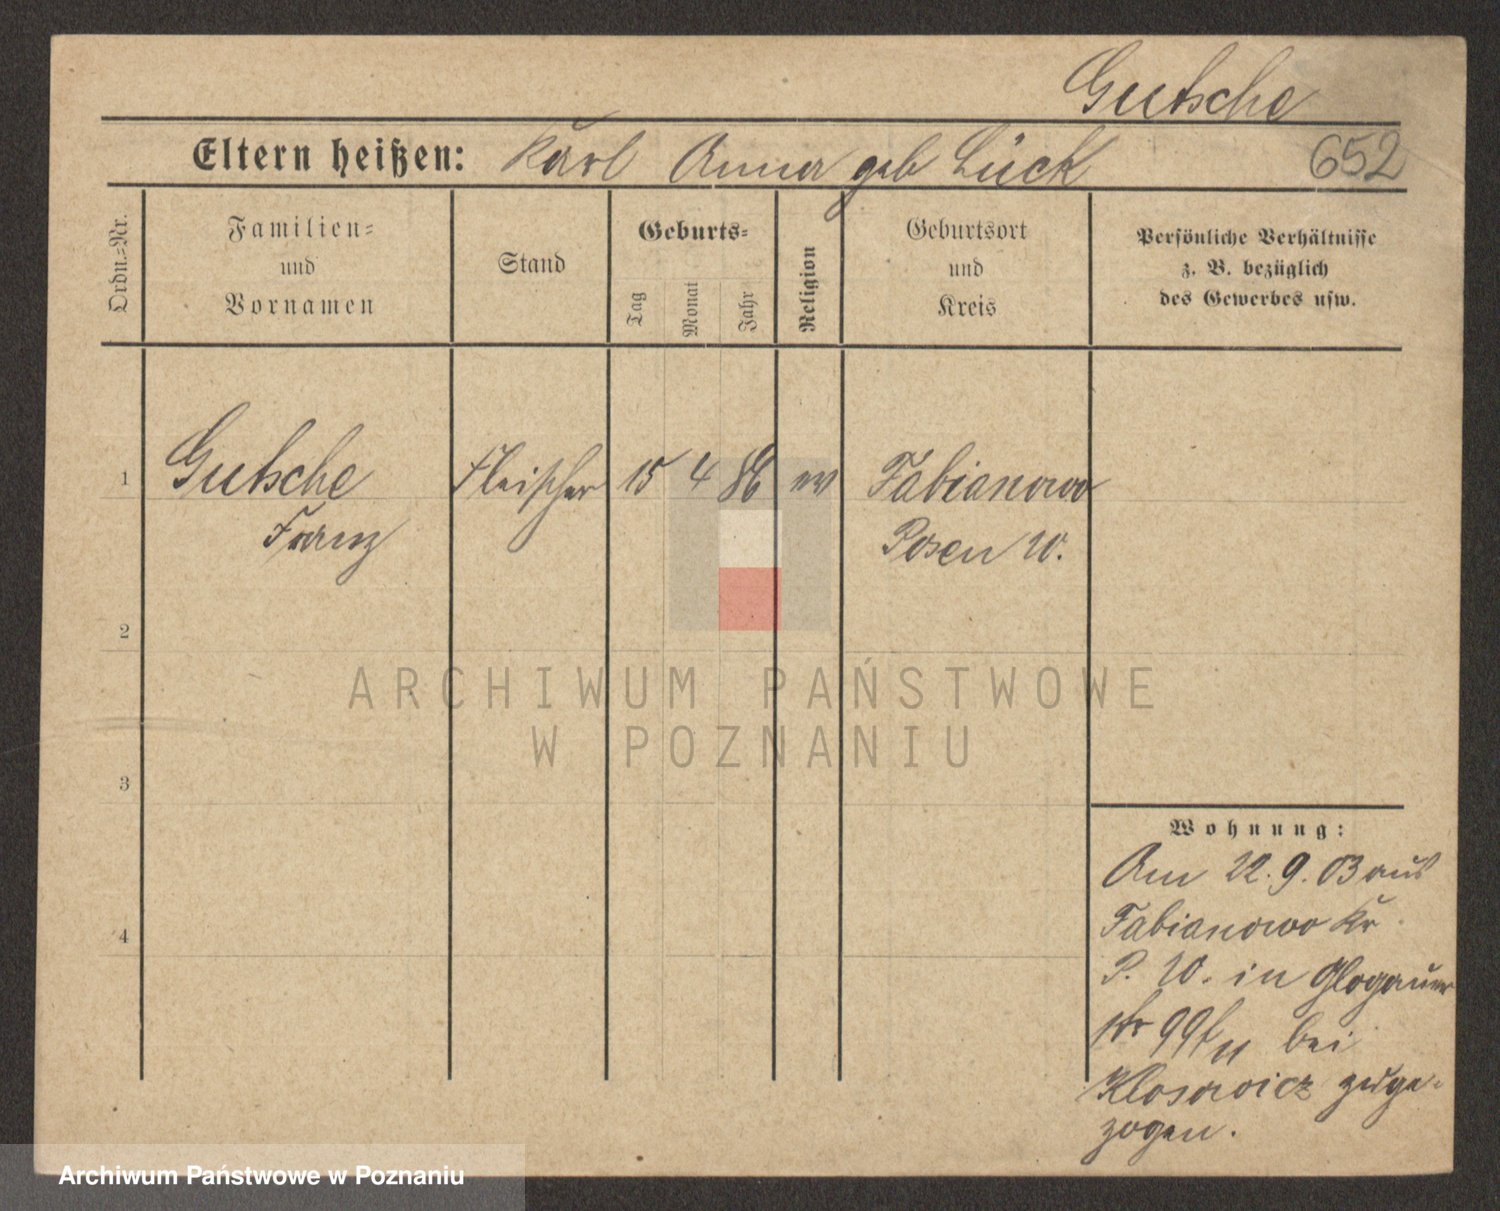 Gutsche
Eltern heißen: Karl Anna geb Lück
652
Ordn.=Nr.
Familien=
und
Vornamen
Stand
Geburts=
Tag
Monat
Jahr
Religion
Geburtsort
und
Kreis
Persönliche Verhältnisse
z. B. bezüglich
des Gewerbes usw.
1
Gutsche
Franz
Fleischer
15
4
86
ev
Fabianowo
Posen W.
2
3
4
Wohnung:
Am 22.9.03 aus
Fabianowo Kr
P. W. in Glogauer
str 99 bei
Klosowicz zuge=
zogen.
ARCHIWUM PAŃSTWOWE
W POZNANIU
Archiwum Państwowe w Poznaniu